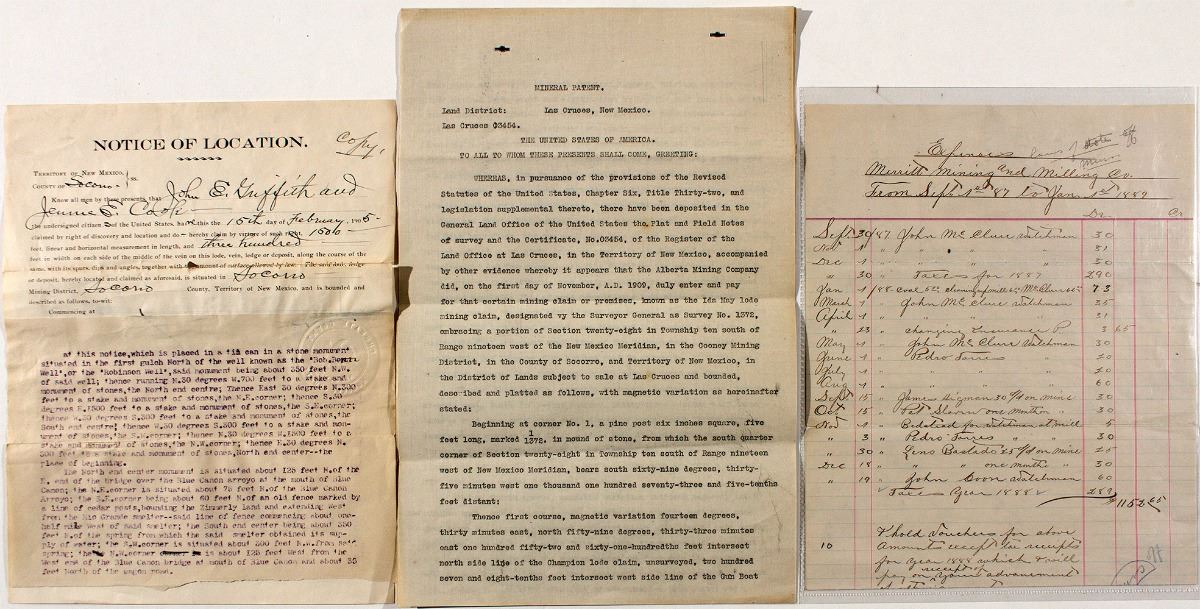 NOTICE OF LOCATION.
Copy.
TERRITORY OF NEW MEXICO,
COUNTY OF Socorro. ss.
Know all men by these presents, that John E. Griffith and
Jennie S. Cook
the undersigned citizen of the United States, have this 15th day of February, 1905
claimed by right of discovery and location and do hereby claim by virtue of such right, 1500
feet, linear and horizontal measurement in length, and three hundred
feet in width on each side of the middle of the vein on this lode, vein, ledge or deposit, along the course of the
same, with its spurs, dips and angles, together with the amount of surface allowed by law. The said lode, ledge
or deposit, hereby located and claimed as aforesaid, is situated in Socorro
Mining District, Socorro County, Territory of New Mexico, and is bounded and
described as follows, to-wit:
Commencing at
at this notice, which is placed in a tin can in a stone monument
situated in the first gulch North of the well known as the "Bob
Well", or the "Robinson Well", said monument being about 350 feet N.W.
of said well; thence running N.30 degrees W.700 feet to a stake and
monument of stones, the North end centre; Thence East 30 degrees N.300
feet to a stake and monument of stones, the N.E. corner; thence S.30
degrees E.1500 feet to a stake and monument of stones, the S.E. corner;
thence W.30 degrees S.300 feet to a stake and monument of stones, the
South end centre; thence W.30 degrees S.300 feet to a stake and mon-
ument of stones, the S.W. corner; thence N.30 degrees W.1500 feet to a
stake and monument of stones, the N.W. corner; thence E.30 degrees N.
300 feet to a stake and monument of stones, North end center--the
place of beginning.
The North end center monument is situated about 125 feet N. of the
E. end of the bridge over the Blue Canon arroyo at the mouth of Blue
Canon; the N.E. corner is situated about 75 feet N. of the Blue Canon
Arroyo; the S.E. corner being about 60 feet N. of an old fence marked by
a line of cedar posts, bounding the Zimmerly land and extending West
from the Rio Grande smelter--said line of fence commencing about one-
half mile West of said smelter; the South end center being about 350
feet N. of the spring from which the said smelter obtained its sup-
ply of water; the S.W. corner is situated about 300 feet N.W. from said
spring; the N.W. corner is about 125 feet West from the
West end of the Blue Canon bridge at mouth of Blue Canon and about 35
feet North of the wagon road.
MINERAL PATENT.
Land District: Las Cruces, New Mexico.
Las Cruces 03454.
THE UNITED STATES OF AMERICA.
TO ALL TO WHOM THESE PRESENTS SHALL COME, GREETING:
WHEREAS, in pursuance of the provisions of the Revised
Statutes of the United States, Chapter Six, Title Thirty-two, and
legislation supplemental thereto, there have been deposited in the
General Land Office of the United States the Plat and Field Notes
of survey and the Certificate, No.03454, of the Register of the
Land Office at Las Cruces, in the Territory of New Mexico, accompanied
by other evidence whereby it appears that the Alberta Mining Company
did, on the first day of November, A.D. 1909, duly enter and pay
for that certain mining claim or premises, known as the Ida May lode
mining claim, designated vy the Surveyor General as Survey No. 1372,
embracing a portion of Section twenty-eight in Township ten south of
Range nineteen west of the New Mexico Meridian, in the Cooney Mining
District, in the County of Socorro, and Territory of New Mexico, in
the District of Lands subject to sale at Las Cruces and bounded,
described and platted as follows, with magnetic variation as hereinafter
stated:
Beginning at corner No. 1, a pine post six inches square, five
feet long, marked 1/1372, in mound of stone, from which the south quarter
corner of Section twenty-eight in Township ten south of Range nineteen
west of New Mexico Meridian, bears south sixty-nine degrees, thirty-
five minutes west one thousand one hundred seventy-three and five-tenths
feet distant:
Thence first course, magnetic variation fourteen degrees,
thirty minutes east, north fifty-nine degrees, thirty-three minutes
east one hundred fifty-two and sixty-one-hundredths feet intersect
north side line of the Champion lode claim, unsurveyed, two hundred
seven and eight-tenths feet intersect west side line of the Gun Boat
Expenses
Merritt Mining and Milling Co.
From Sept 1st 87 to Jan 1st 1889
Dr. Cr
Sept 30/87 John McClure Watchman 30
Nov 1 " " " " 31
Dec 1 " " " " 30
" 30 " Taxes for 1887 290
Jan 1/88 Coal McClure 73
March 1 " John McClure Watchman 35
April 1 " " " " 31
" 23 " changing Insurance P 3 65
May 1 " John McClure Watchman 30
June 1 " Pedro Torres " 10
July 1 " " " " 10
Aug 1 " " " " 60
Sept 15 " James Higman 30 on mine 30
Oct 15 " Pat Slaven one month " 30
Nov 1 " Bedstead for watchman at mill 5
" 3 " Pedro Torres " " 30
" 30 " Zeno Bastado on mine 25
Dec 18 " " one month " 30
" 19 " John Coon Watchman 60
Taxes Year 1888 289
$1152.65
I hold Vouchers for above
10 Amounts except tax receipts
for year 1888 which I will
pay on receipt of your advancement